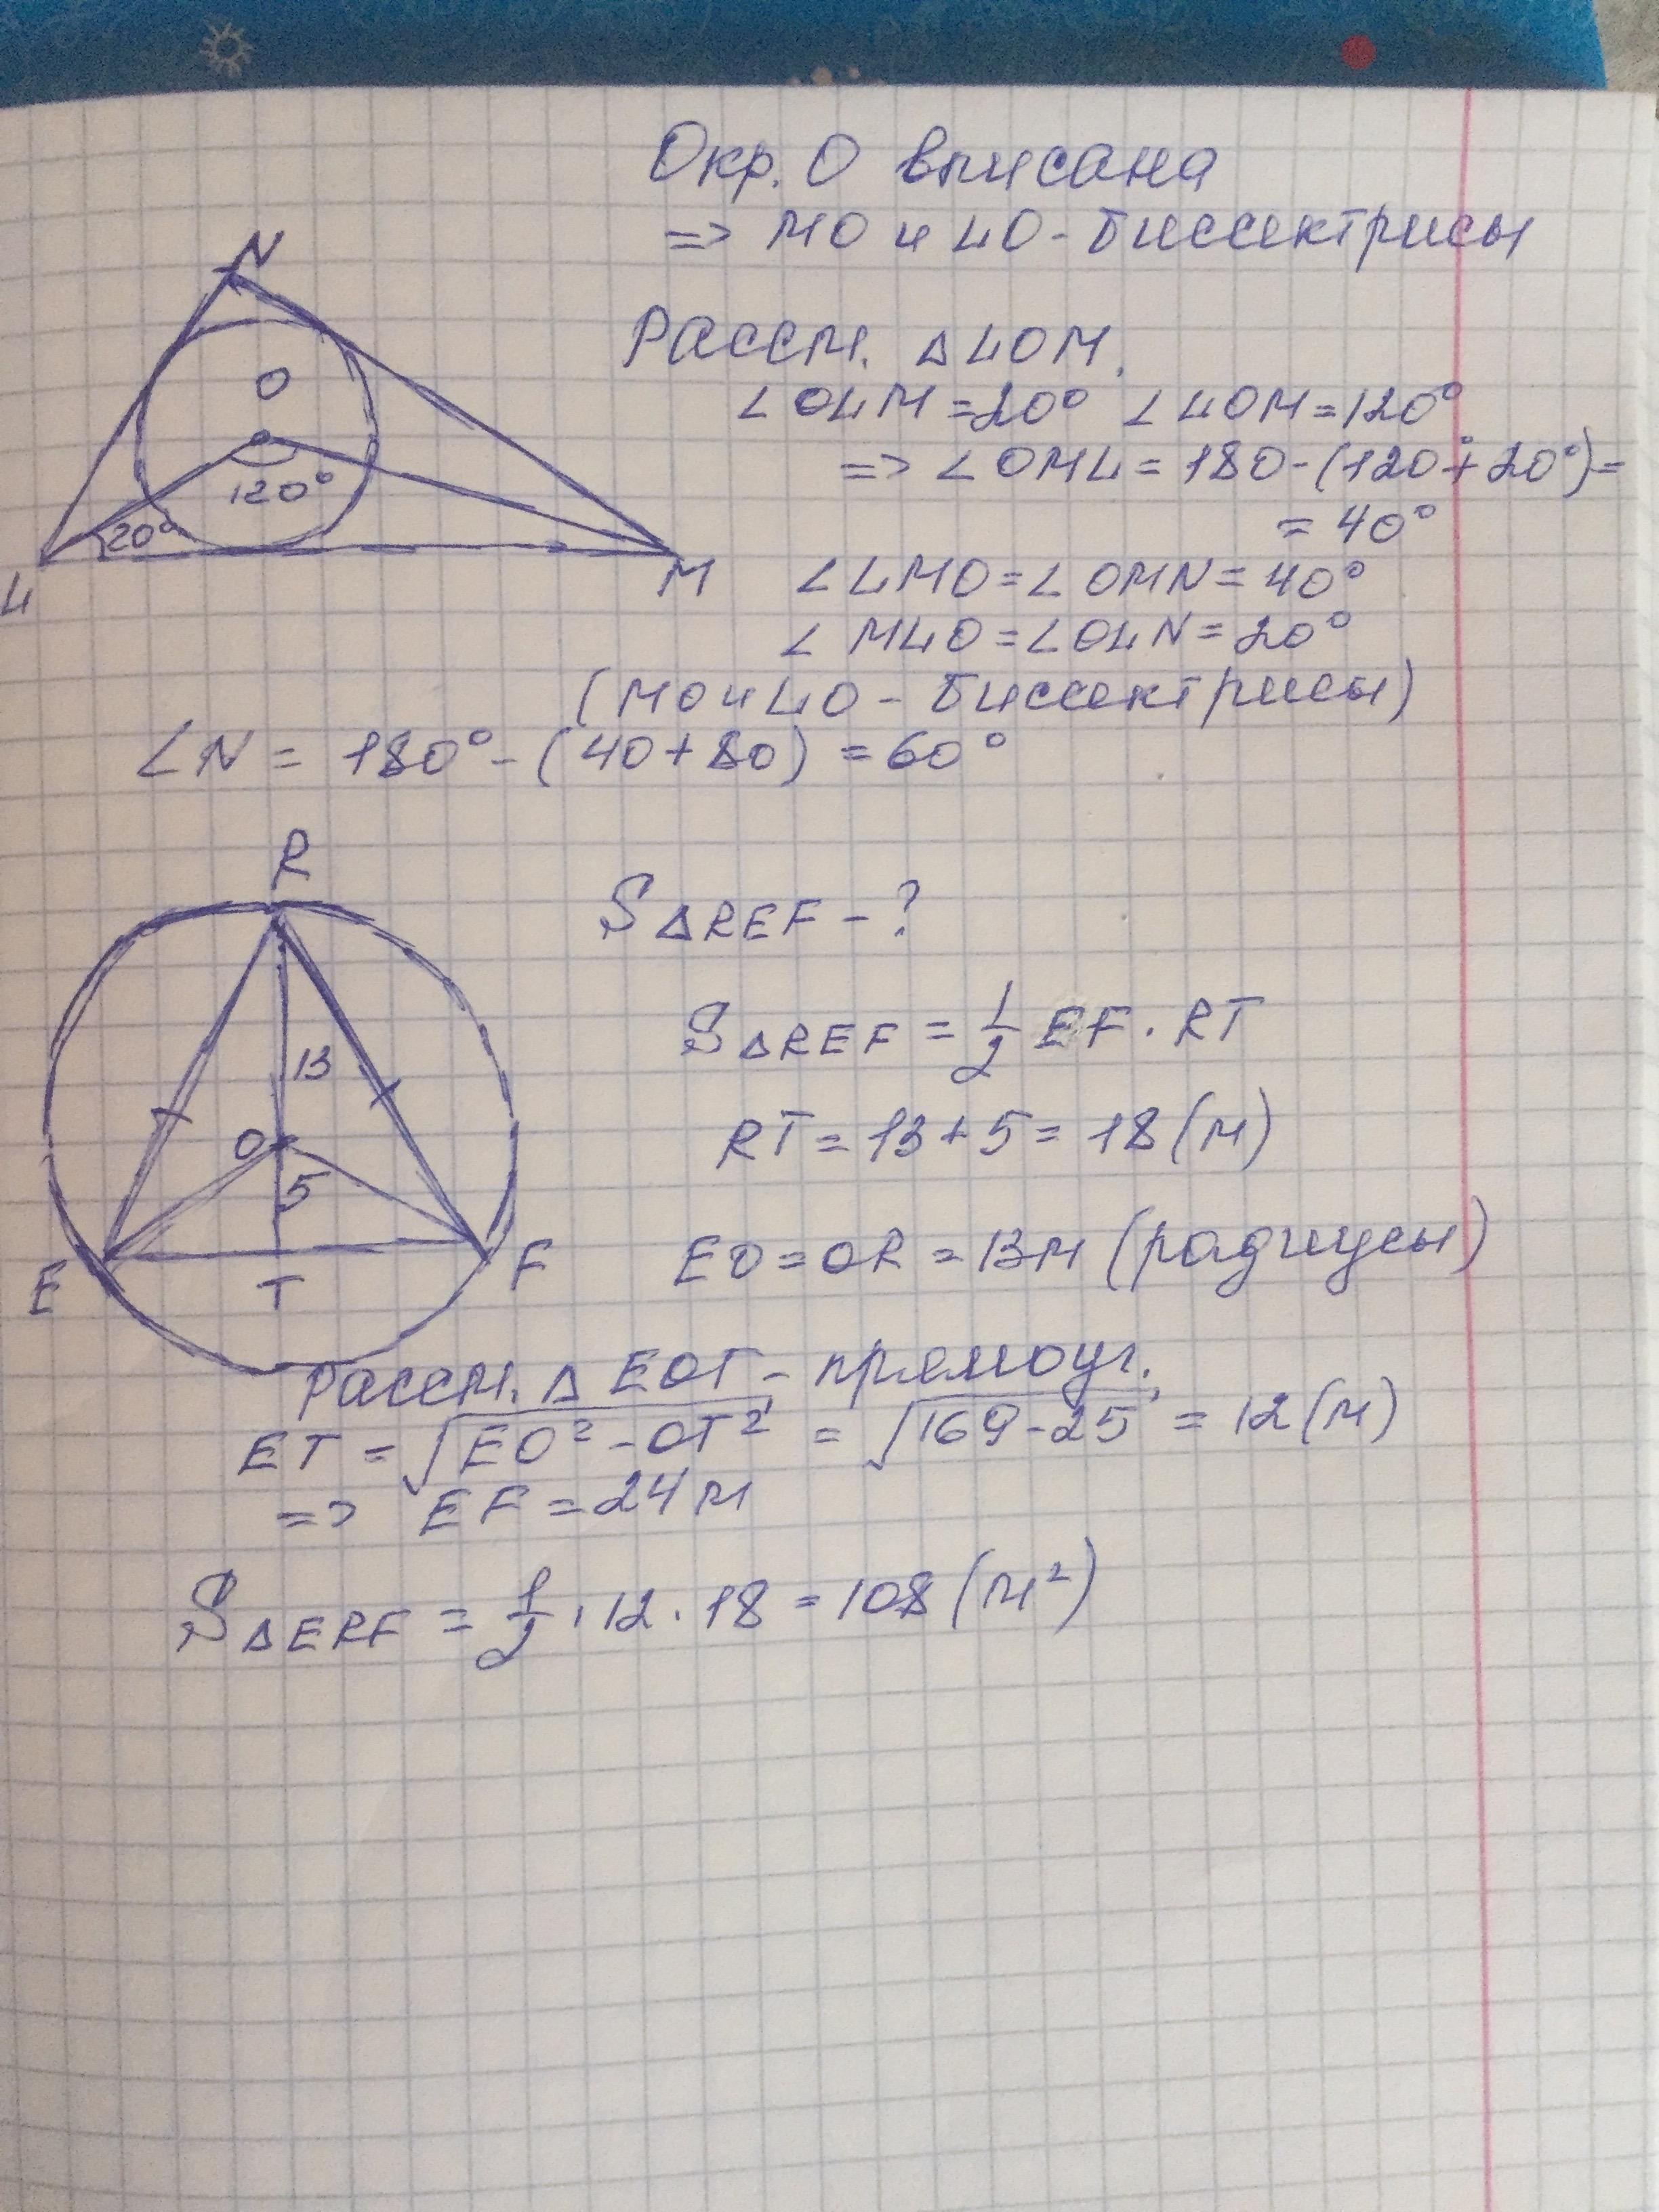 Окр. О вписана
=> MO и LO - биссектрисы
N
O
120°
20°
L
M
Рассм. △LOM.
∠OLM = 20° ∠LOM = 120°
=> ∠OML = 180 - (120° + 20°) =
= 40°
∠LMO = ∠OMN = 40°
∠MLO = ∠OLN = 20°
(MO и LO - биссектрисы)
∠N = 180° - (40 + 80) = 60°
R
13
O
5
E
T
F
S△REF - ?
S△REF = 1/2 EF · RT
RT = 13 + 5 = 18 (м)
EO = OR = 13м (радиусы)
Рассм. △EOT - прямоуг.
ET = √(EO² - OT²) = √(169 - 25) = 12 (м)
=> EF = 24 м
S△ERF = 1/2 · 12 · 18 = 108 (м²)